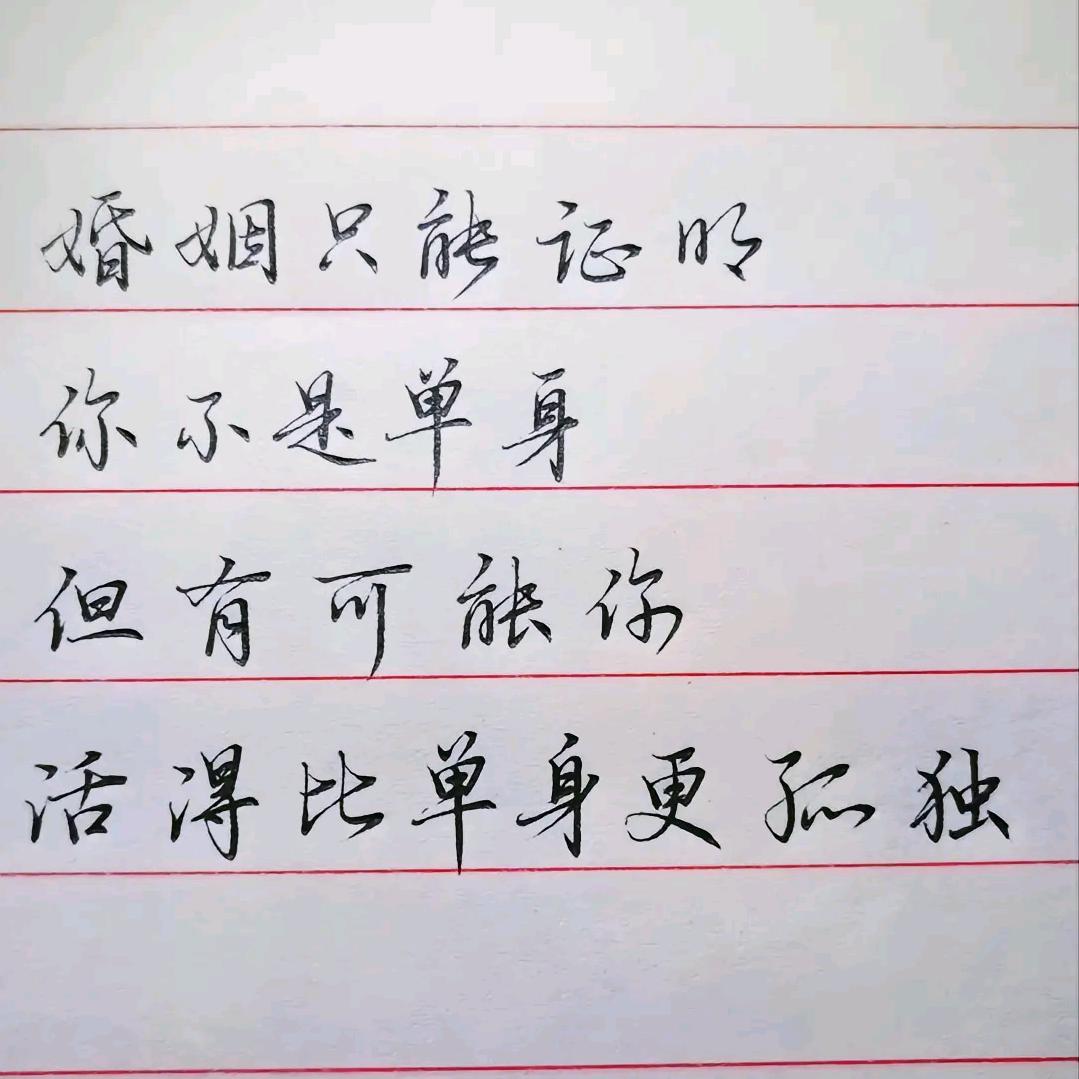 婚姻只能证明
你不是单身
但有可能你
活得比单身更孤独